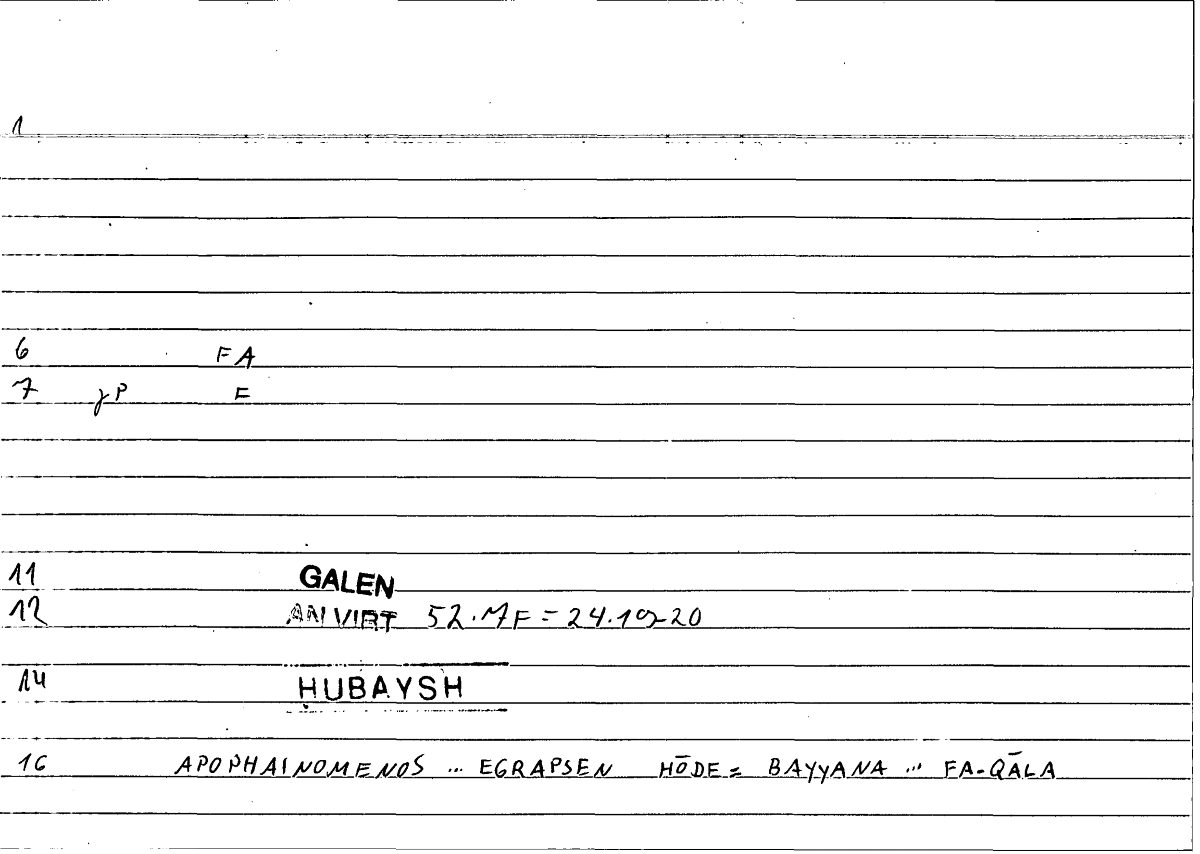 1
6 FA
7 γP F
11 GALEN
12 AN VIRT 52.17F = 24.19-20
14 HUBAYSH
16 APOPHAINOMENOS ... EGRAPSEN HŌDE = BAYYANA ... FA-QĀLA